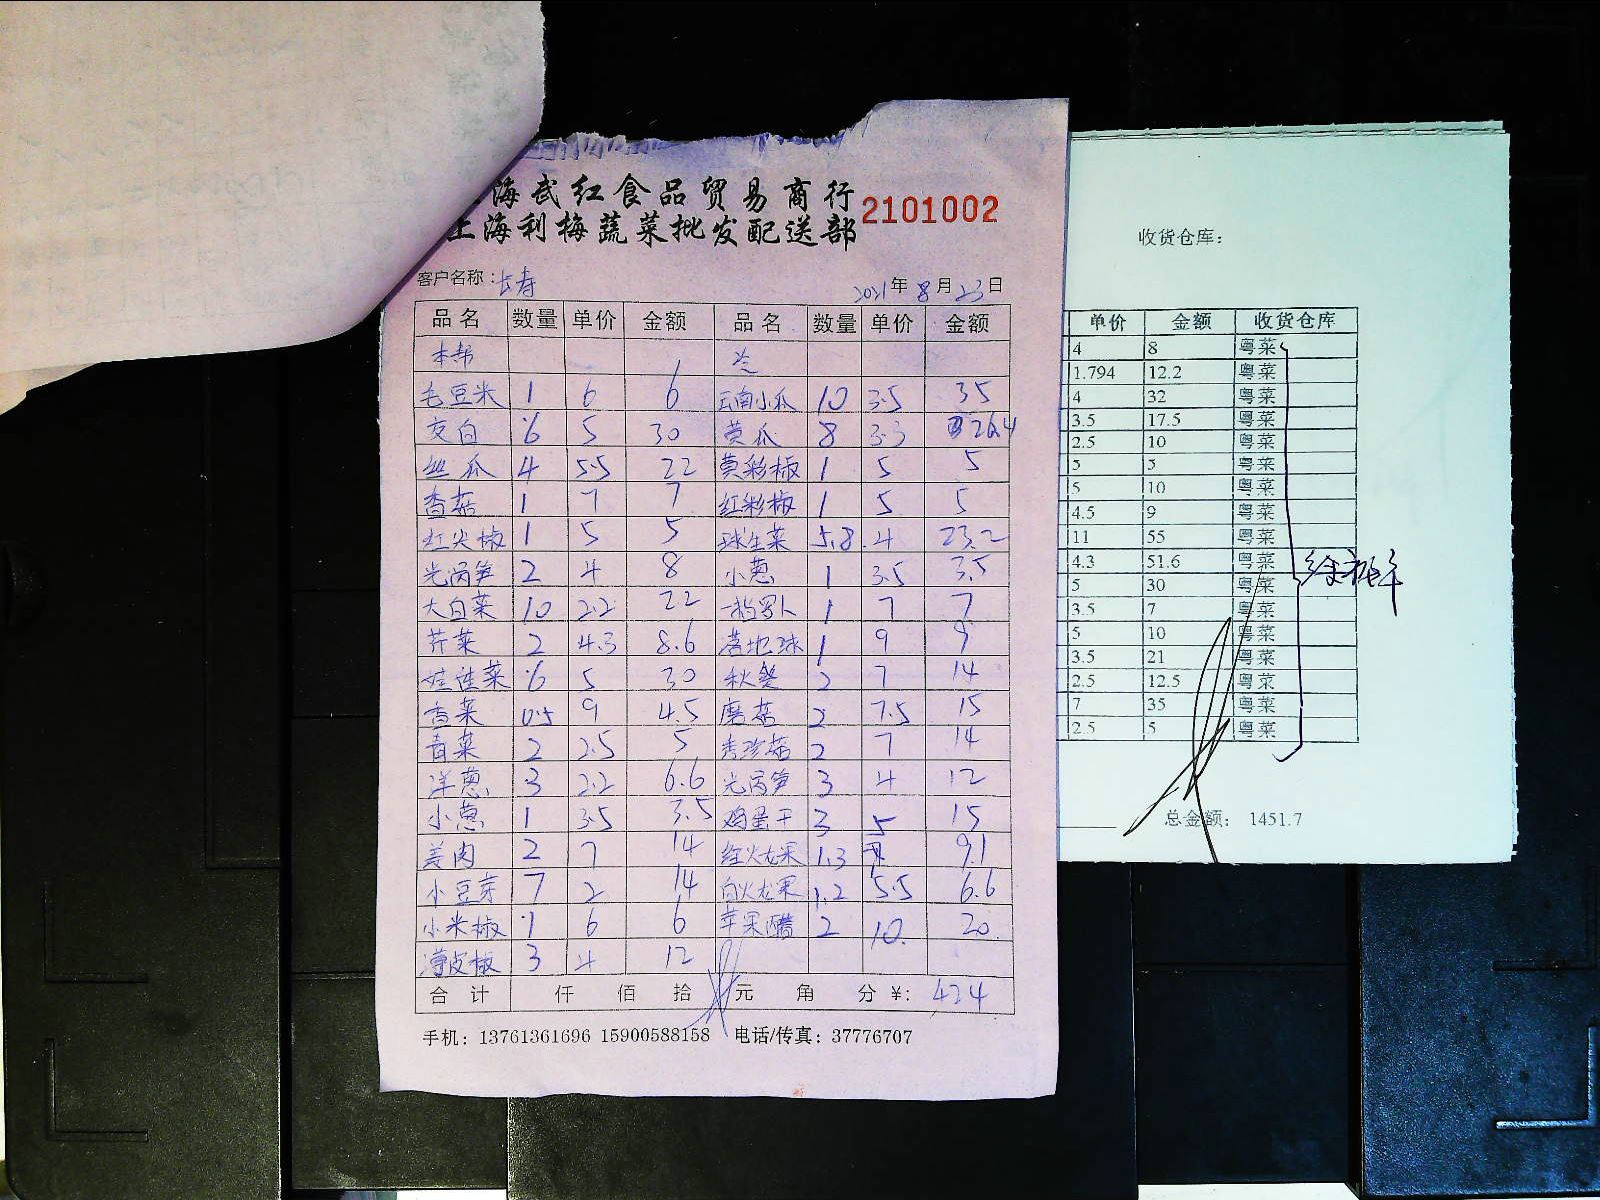 海武红食品贸易商行
上海利梅蔬菜批发配送部 2101002
客户名称：长寿 2021年8月23日
品名 数量 单价 金额 品名 数量 单价 金额
本帮 冷
毛豆米 1 6 6 云南小瓜 10 3.5 35
茭白 6 5 30 黄瓜 8 3.3 26.4
丝瓜 4 5.5 22 黄彩椒 1 5 5
香菇 1 7 7 红彩椒 1 5 5
红尖椒 1 5 5 球生菜 5.8 4 23.2
光莴笋 2 4 8 小葱 1 3.5 3.5
大白菜 10 2.2 22 1 7 7
芹菜 2 4.3 8.6 1 9 9
娃娃菜 6 5 30 秋葵 2 7 14
香菜 0.5 9 4.5 蘑菇 2 7.5 15
青菜 2 2.5 5 秀珍菇 2 7 14
洋葱 3 2.2 6.6 光莴笋 3 4 12
小葱 1 3.5 3.5 鸡蛋干 3 5 15
姜肉 2 7 14 红火龙果 1.3 7 9.1
小豆芽 7 2 14 白火龙果 1.2 5.5 6.6
小米椒 1 6 6 苹果醋 2 10 20
薄皮椒 3 4 12
合计 仟 佰 拾 元 角 分 ¥: 424
手机：13761361696 15900588158 电话/传真：37776707
收货仓库：
单价 金额 收货仓库
4 8 粤菜
1.794 12.2 粤菜
4 32 粤菜
3.5 17.5 粤菜
2.5 10 粤菜
5 5 粤菜
5 10 粤菜
4.5 9 粤菜
11 55 粤菜
4.3 51.6 粤菜
5 30 粤菜
3.5 7 粤菜
5 10 粤菜
3.5 21 粤菜
2.5 12.5 粤菜
7 35 粤菜
2.5 5 粤菜
总金额： 1451.7